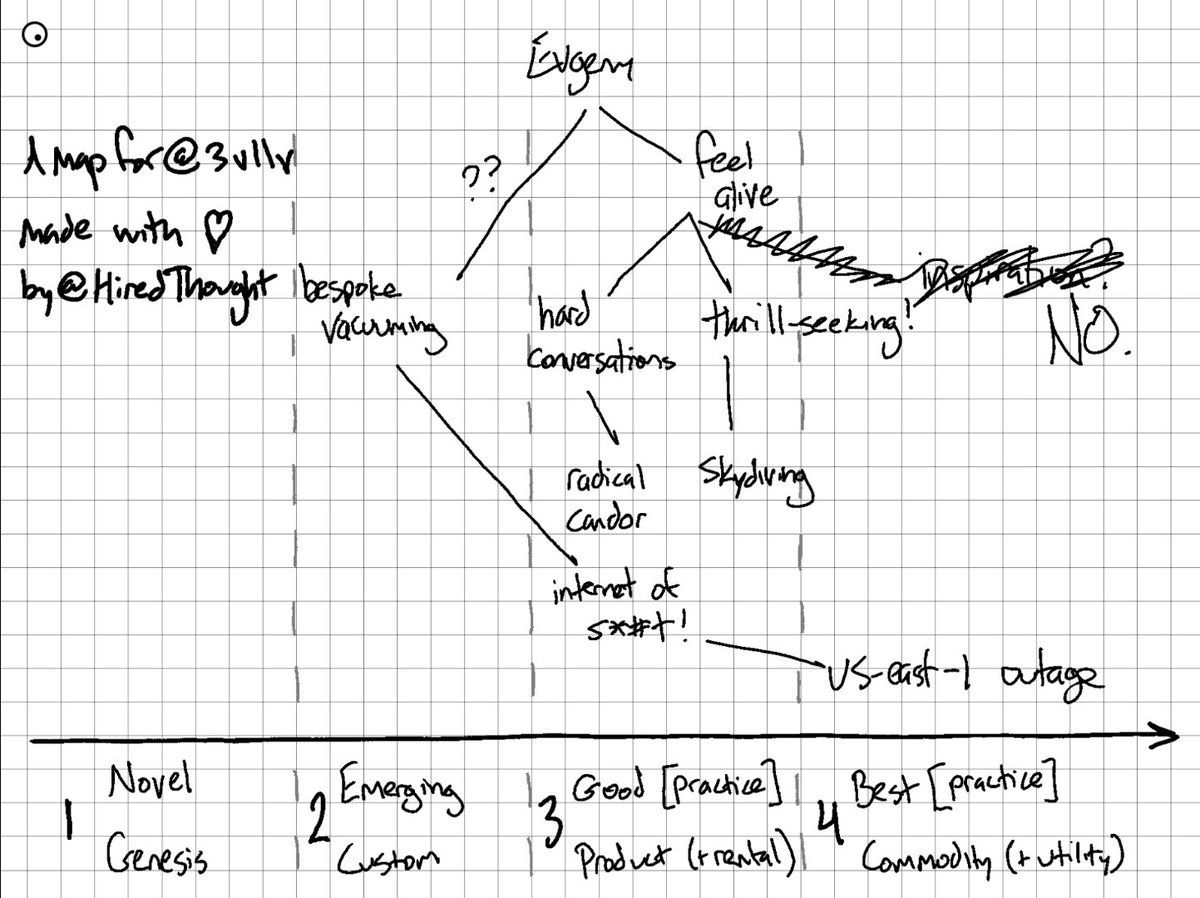 Evgeny
A map for @3v1lv
made with ♡
by @HiredThought
??
feel
alive
bespoke
vacuuming
hard
conversations
thrill-seeking!
inspiration?
NO.
radical
candor
skydiving
internet of
s*#t!
US-east-1 outage
1 Novel
Genesis
2 Emerging
Custom
3 Good [practice]
Product (+rental)
4 Best [practice]
Commodity (+utility)